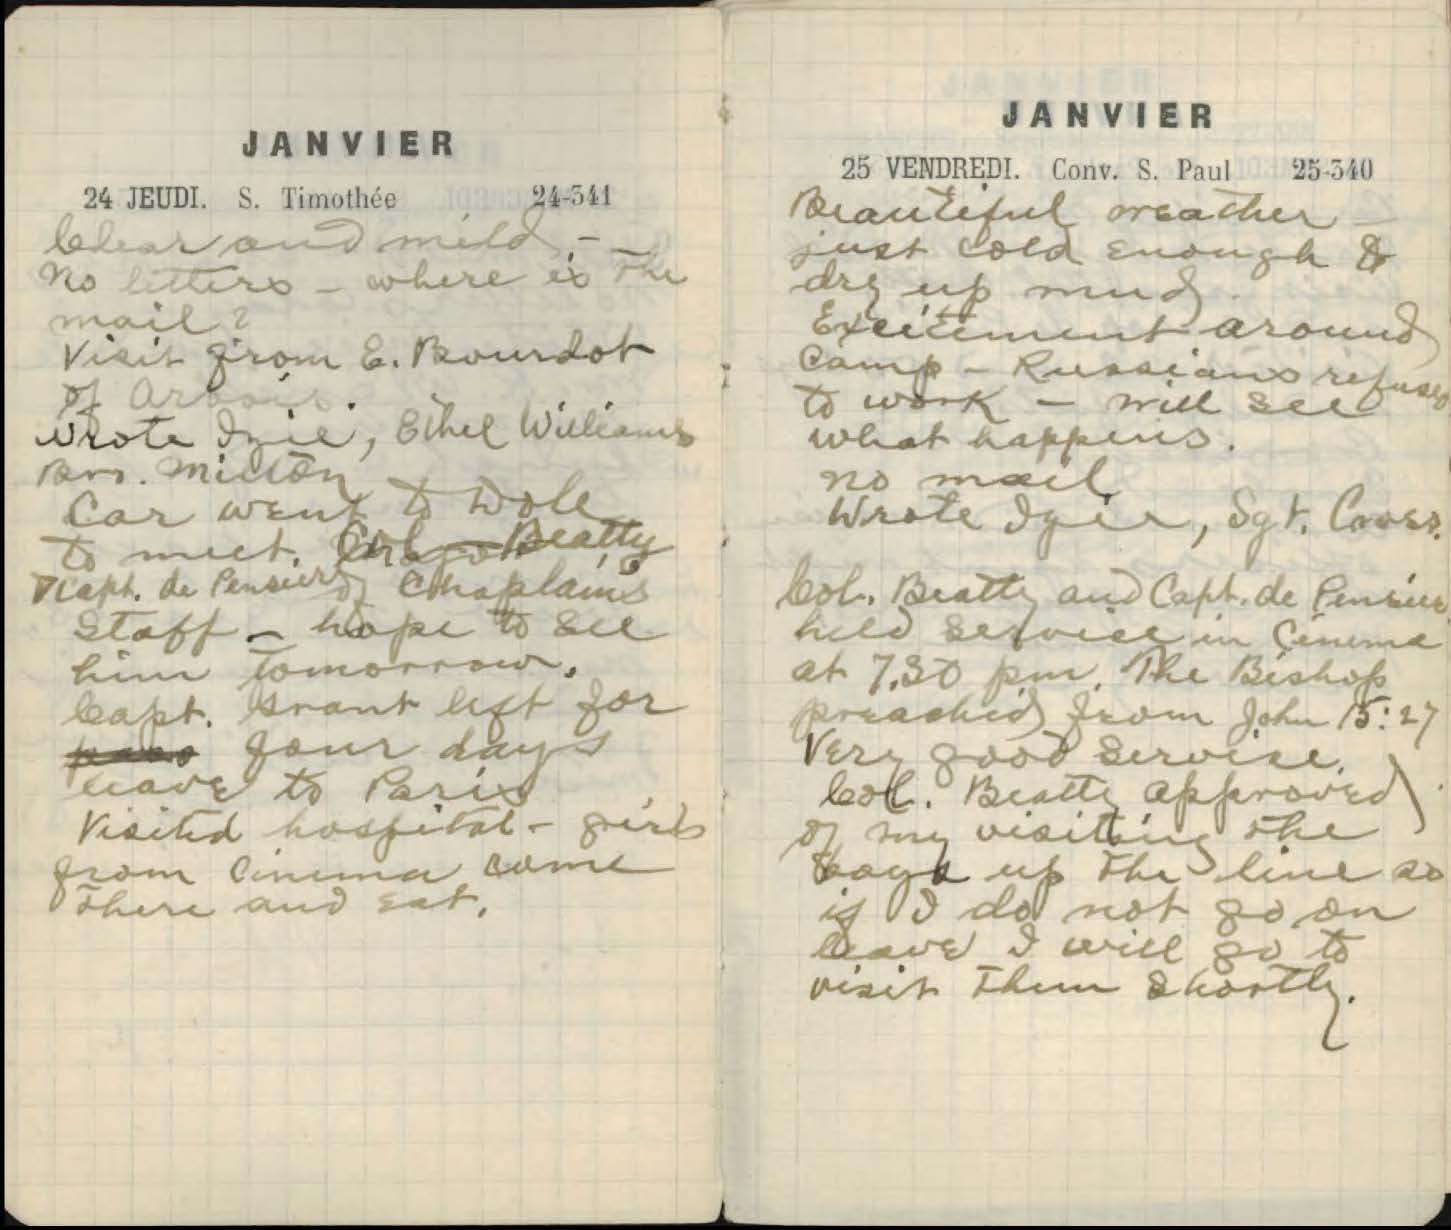 JANVIER
24 JEUDI. S. Timothée 24-341
Clear and mild. –
No letters – where is the
mail?
Visit from E. Bourdot
of Arbois.
Wrote Izie, Ethel Williams
Milton
Car went to Dole
to meet Col. Beatty
& Capt. de Pensier of Chaplains
staff – hope to see
him tomorrow.
Capt. Grant left for
four days
leave to Paris
Visited hospital – girls
from Cinema come
there and eat.
JANVIER
25 VENDREDI. Conv. S. Paul 25-340
Beautiful weather –
just cold enough to
dry up mud.
Excitement around
camp – Russians refused
to work – will see
what happens.
No mail.
Wrote Izie, Sgt. Cross.
Col. Beatty and Capt. de Pensier
held service in Cinema
at 7.30 pm. The Bishop
preached from John 15:27
Very good service.
Col. Beatty approved
of my visiting the
boys up the line so
if I do not go on
leave I will go to
visit them shortly.